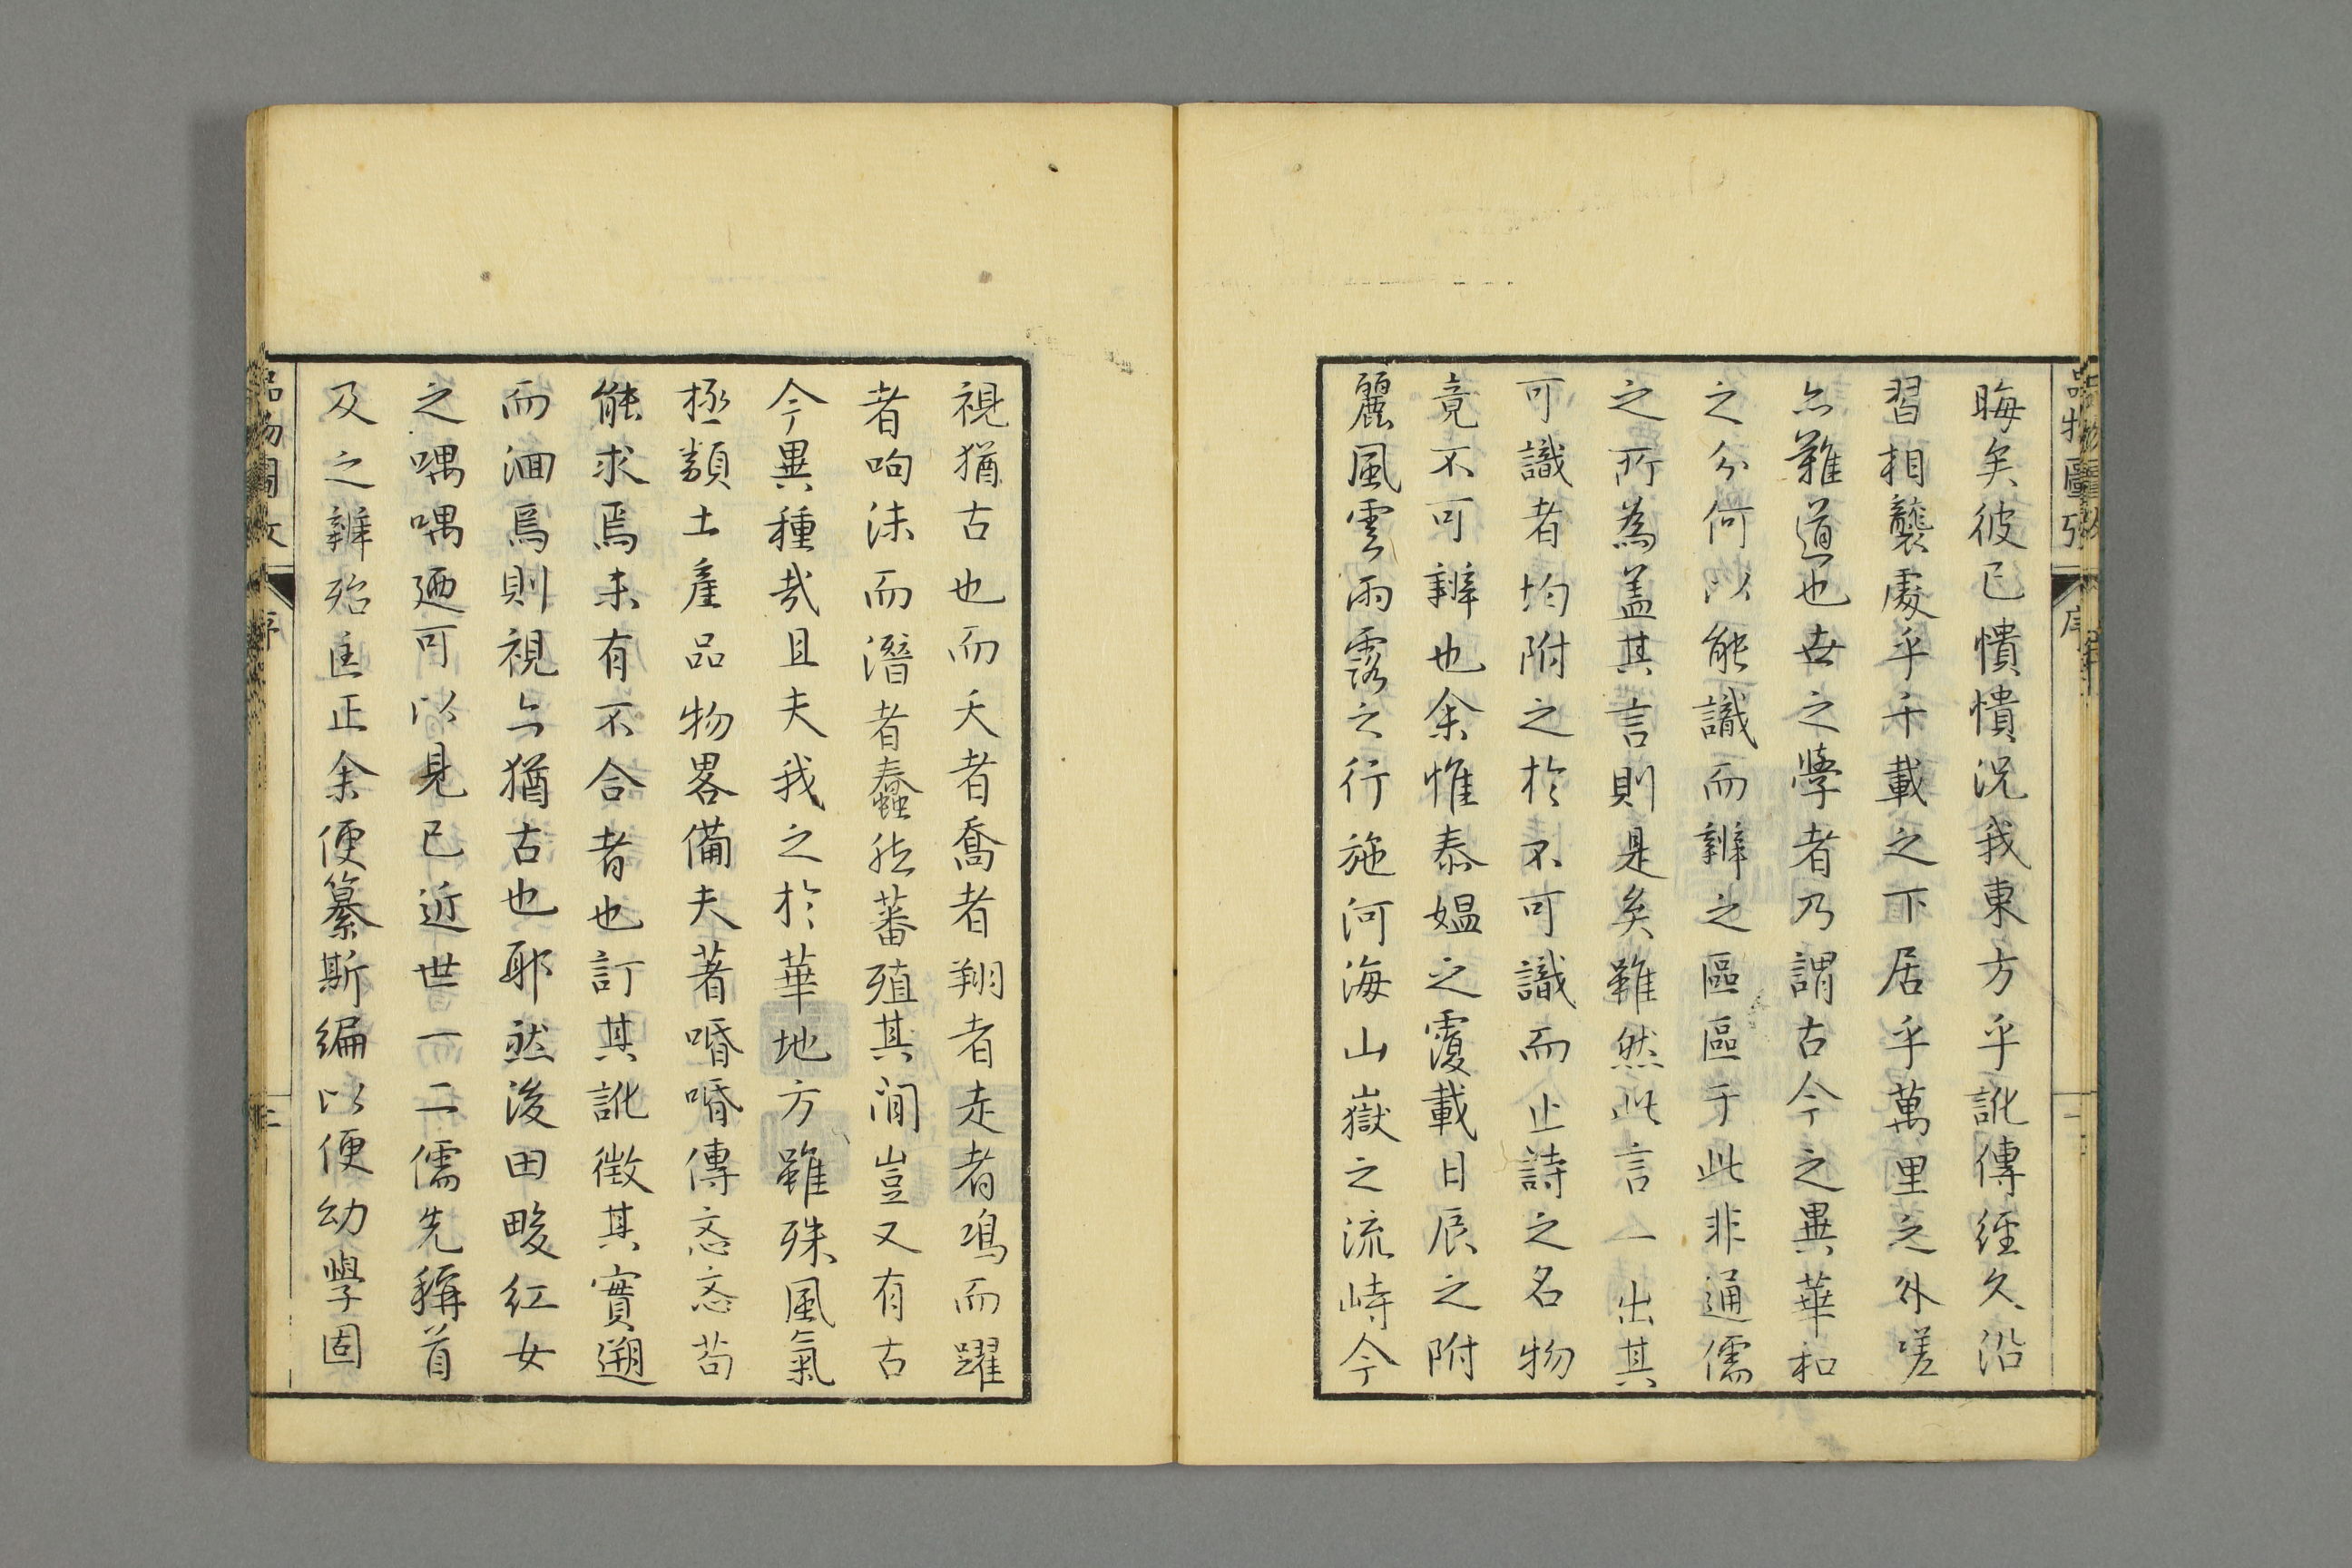 晦矣彼已憒憒況我東方乎訛傳經久沿
習相襲處乎千載之下居乎萬里之外嗟
亦難道也世之學者乃謂古今之異華和
之分何以能識而辨之區區于此非通儒
之所為盖其言則是矣雖然此言一出其
可識者均附之於不可識而止詩之名物
竟不可辨也余惟泰媼之覆載日辰之附
麗風雲雨露之行施河海山嶽之流峙今
視猶古也而夭者喬者翔者走者鳴而躍
者呴沫而潛者蠢然蕃殖其間豈又有古
今異種哉且夫我之於華地方雖殊風氣
極類土產品物畧備夫著㖧㖧傳忞忞苟
能求焉未有不合者也訂其訛徵其實遡
而湎焉則視亦猶古也耶然後田畯紅女
之喁喁廼可以見已近世一二儒先稱首
及之辨殆匡正余便纂斯編以便幼學固
品物圖攷 序